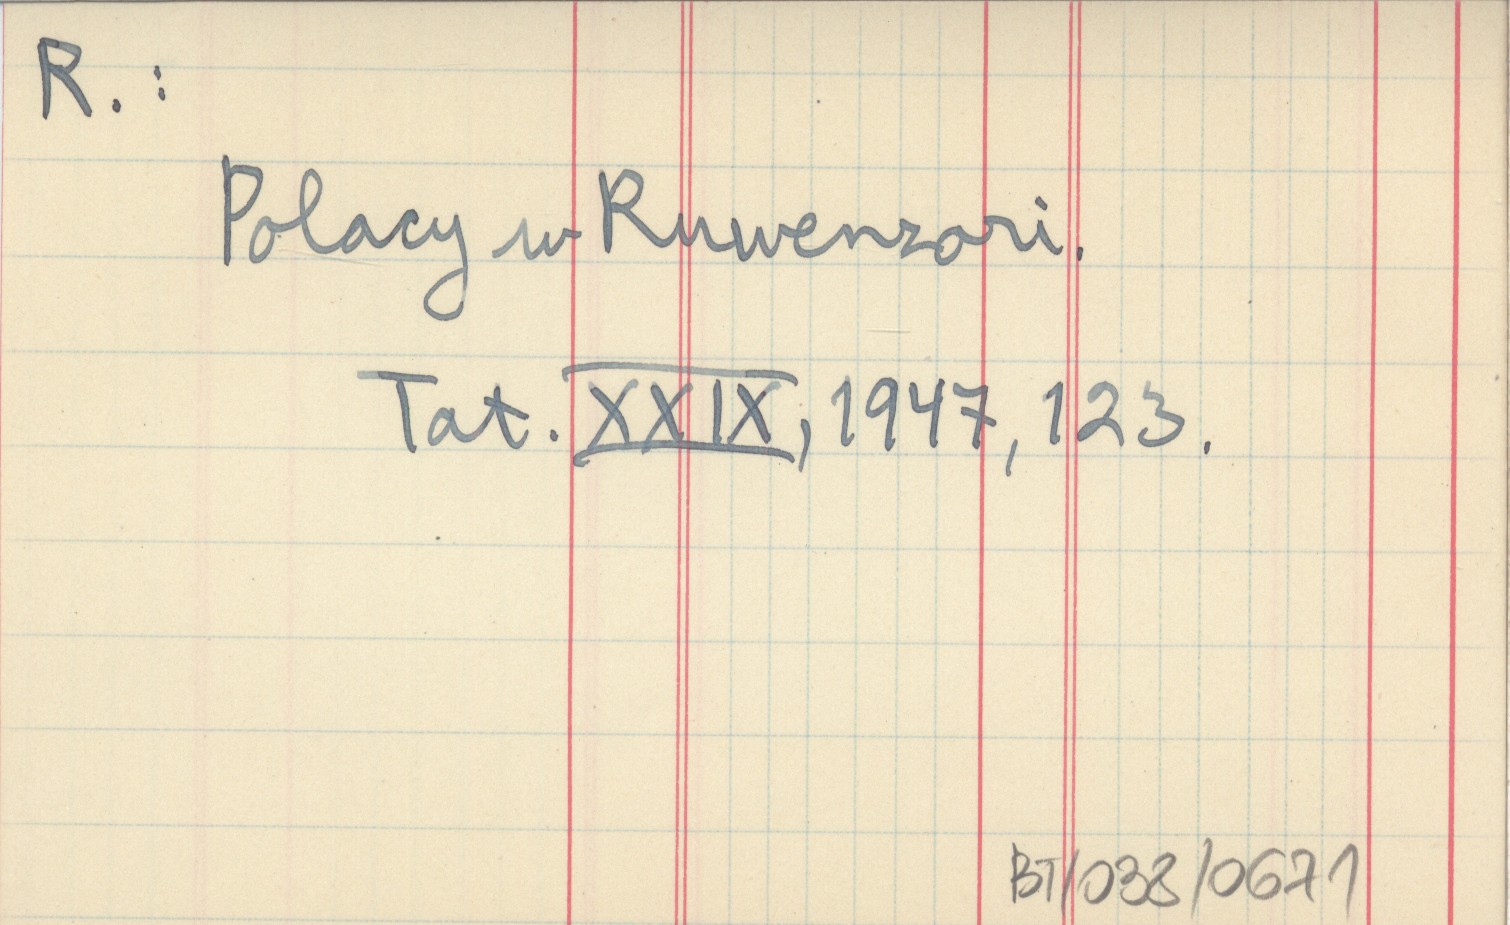 R.:
Polacy w Ruwenzori.
Tat. XXIX, 1947, 123.
BT/038/0671